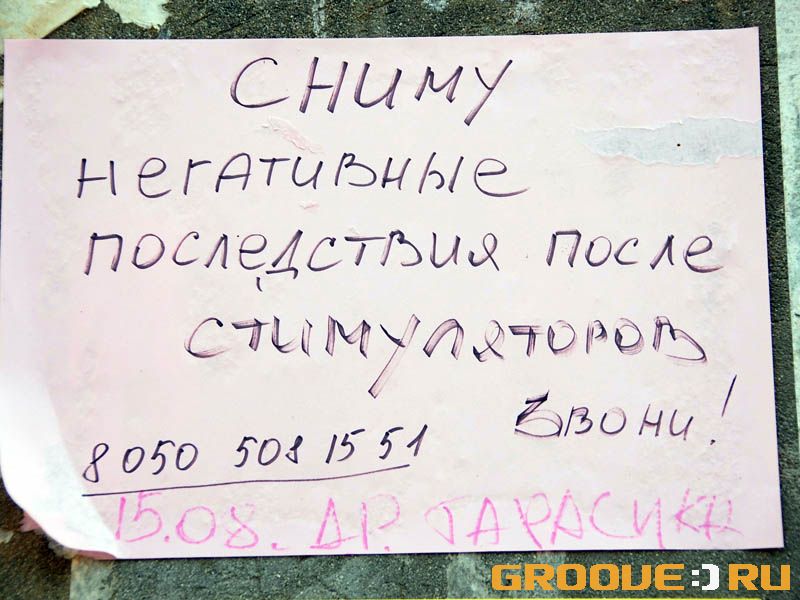 СНИМУ
негативные
последствия после
стимуляторов
Звони!
8 050 508 15 51
15.08. ДР. ТАРАСИКА
GROOVE:)RU